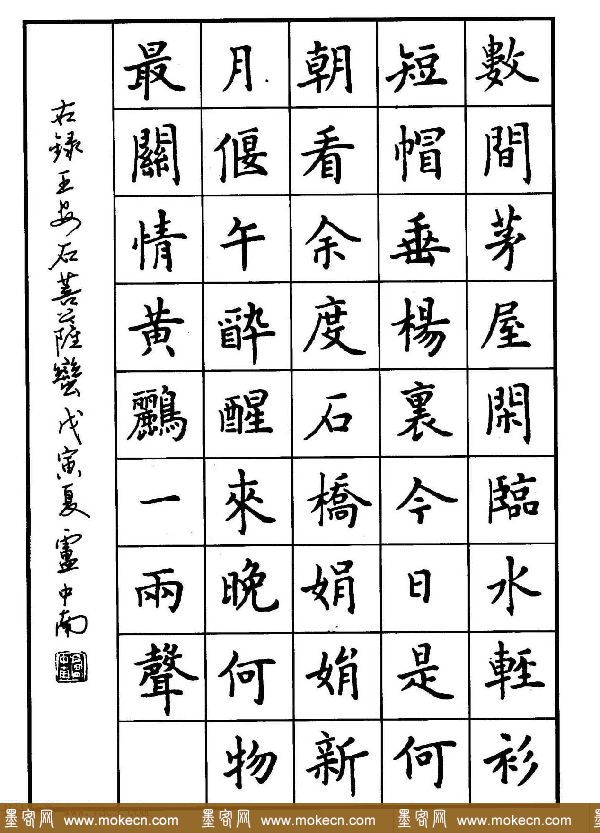 數間茅屋閑臨水輕衫
短帽垂楊裏今日是何
朝看余度石橋娟娟新
月偃午醉醒來晚何物
最關情黃鸝一兩聲
右錄王安石菩薩蠻戊寅夏盧中南
墨客网 www.mokecn.com 墨客网 www.mokecn.com 墨客网 www.mokecn.com 墨客网 www.mokecn.com